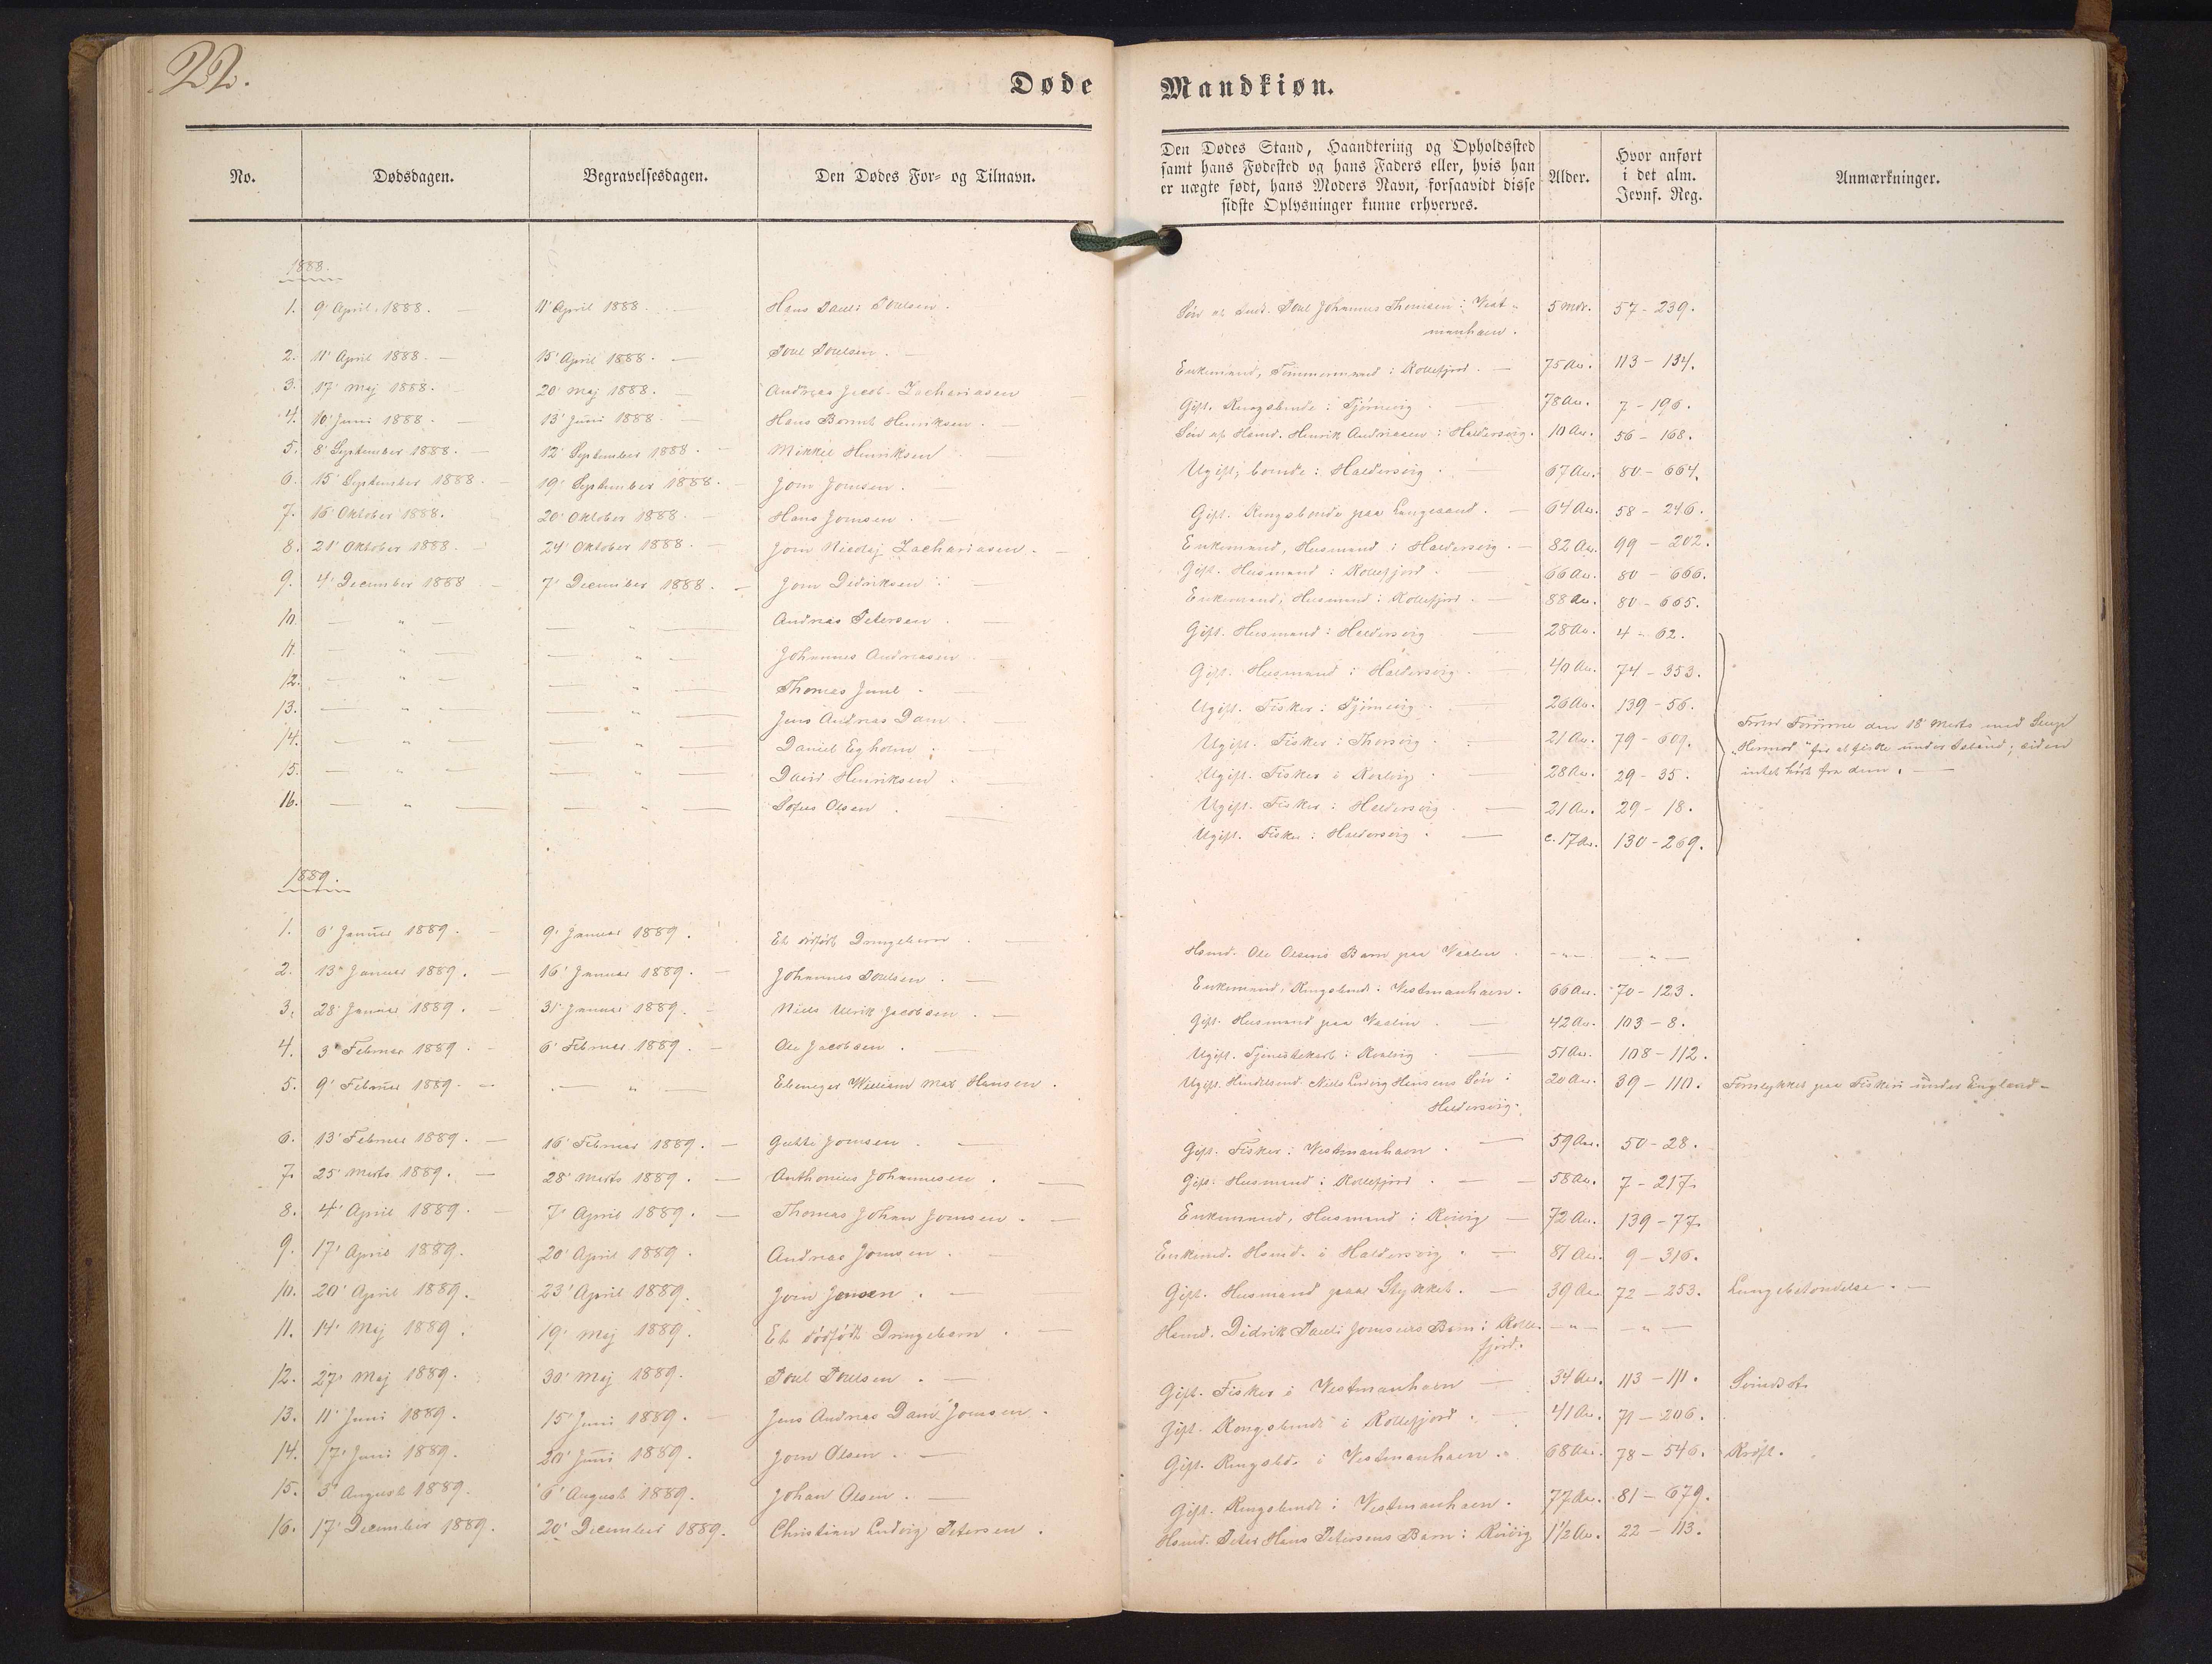 22.
Døde Mandkiøn.
No. Dødsdagen. Begravelsesdagen. Den Dødes For- og Tilnavn. Den Dødes Stand, Haandtering og Opholdssted samt hans Fødested og hans Faders eller, hvis han er uægte født, hans Moders Navn, forsaavidt disse sidste Oplysninger kunne erhverves. Alder. Hvor anført i det alm. Jevnf. Reg. Anmærkninger.
1888.
1. 9' April 1888. — 11' April 1888. — Hans Pauli Poulsen. Søn af Poul Johannes Thomsen i Vest- 5 Mdr. 57 - 239.
manhavn.
2. 11' April 1888. — 15' April 1888. — Poul Poulsen. — Enkemand, Tømmermand i Kollefjord. — 75 Aar. 113 - 134.
3. 17' Maj 1888. 20' Maj 1888. — Andreas Jacob Zachariasen Gift. Kongsbonde i Tjørnevig. — 78 Aar. 7 - 196.
4. 10' Juni 1888. — 13' Juni 1888. — Hans Berint Henriksen. — Søn af Hsmd. Henrik Andreasen i Haldersvig. 10 Aar. 56 - 168.
5. 8' September 1888. — 12' September 1888. — Mikkel Henriksen — Ugift, boende i Haldersvig. — 67 Aar. 80 - 664.
6. 15' September 1888. — 19' September 1888. — Joen Joensen. — Gift. Kongsbonde paa Langesand. — 64 Aar. 58 - 246.
7. 16' Oktober 1888. 20' Oktober 1888. — Hans Joensen. — Enkemand, Husmand i Haldersvig. — 82 Aar. 99 - 202.
8. 21' Oktober 1888. — 24' Oktober 1888. — Joen Nicolaj Zachariasen. — Gift. Husmand i Kollefjord. — 66 Aar. 80 - 666.
9. 4' December 1888 — 7' December 1888. — Joen Didriksen — Enkemand, Husmand i Kollefjord. — 88 Aar. 80 - 665.
10. — " — — " — Andreas Petersen. — Gift. Husmand i Haldersvig — 28 Aar. 4 - 62.
11. — " — — " — Johannes Andreasen — Gift. Husmand i Haldersvig. — 40 Aar. 74 - 353.
12. — " — — " — Thomas Juul. — Ugift. Fisker i Tjørnevig. — 26 Aar. 139 - 56.
13. — " — — " — Jens Andreas Dam. — Ugift. Fisker i Thorsvig. — 21 Aar. 79 - 609.
14. — " — — " — Daniel Egholm. — Ugift. Fisker i Kvalvig. — 28 Aar. 29 - 35.
15. — " — — " — David Henriksen. — Ugift. Fisker i Haldersvig. — 21 Aar. 29 - 18.
16. — " — — " — Sofus Olsen. — Ugift. Fisker i Haldersvig. — c. 17 Aar. 130 - 269.
den 18' Marts med Slup
"Hermod" for at fiske under Island; siden
intet hørt fra dem. —
1889.
1. 6' Januar 1889. — 9' Januar 1889. Et dødfødt Drengebarn. — Hsmd. Ole Olsens Barn paa Vaalen. — " — — " —
2. 13' Januar 1889. — 16' Januar 1889. — Johannes Poulsen. — Enkemand, Kongsbonde i Vestmanhavn. 66 Aar. 70 - 123.
3. 28' Januar 1889. — 31' Januar 1889. — Niels Ulrik Jacobsen. — Gift. Husmand paa Vaalen. — 42 Aar. 103 - 8.
4. 3' Februar 1889. — 6' Februar 1889. — Ole Jacobsen. — Ugift. Tjenestekarl i Kvalvig. — 51 Aar. 108 - 112.
5. 9' Februar 1889. — — " — Ebenezer William Max Hansen. Ugift. Handelsmd. Niels Ludvig Hansens Søn i 20 Aar. 39 - 110. Forulykket paa Fiskeri under England —
Haldersvig.
6. 13' Februar 1889. — 16' Februar 1889. — Gutte Joensen. — Gift. Fisker i Vestmanhavn. — 59 Aar. 50 - 28.
7. 25' Marts 1889. — 28' Marts 1889. — Anthonius Johannesen. — Gift. Husmand i Kollefjord. — 58 Aar. 7 - 217.
8. 4' April 1889. — 7' April 1889. — Thomas Johan Joensen. — Enkemand, Husmand i — 72 Aar. 139 - 77.
9. 17' April 1889. 20' April 1889. Andreas Joensen. — Enkemd. Hsmd. i Haldersvig. — 81 Aar. 9 - 316.
10. 20' April 1889. 23' April 1889. Joen Jensen. — Gift. Husmand paa Stykket. — 39 Aar 72 - 253. Lungebetændelse. —
11. 14' Maj 1889. 19' Maj 1889. Et dødfødt Drengebarn. — Hsmd. Didrik Pauli Joensens Barn i Kolle- — " — — " —
fjord.
12. 27' Maj 1889. 30' Maj 1889. Poul Poulsen. — Gift. Fisker i Vestmanhavn — 34 Aar. 113 - 111. Svindsot.
13. 11' Juni 1889. 15' Juni 1889. — Jens Andreas Dam Joensen. Gift. Kongsbonde i Kollefjord. — 41 Aar. 71 - 206.
14. 17' Juni 1889. 20' Juni 1889. Joen Olsen. — Gift. Kongsbd. i Vestmanhavn. 68 Aar. 78 - 546. Kræft.
15. 3' August 1889. 6' August 1889. Johan Olsen. — Gift. Kongsbonde i Vestmanhavn. 77 Aar. 81 - 679.
16. 17' December 1889. 20' December 1889. Christian Ludvig Petersen. Hsmd. Peter Hans Petersens Barn i 1 1/2 Aar. 22 - 113.